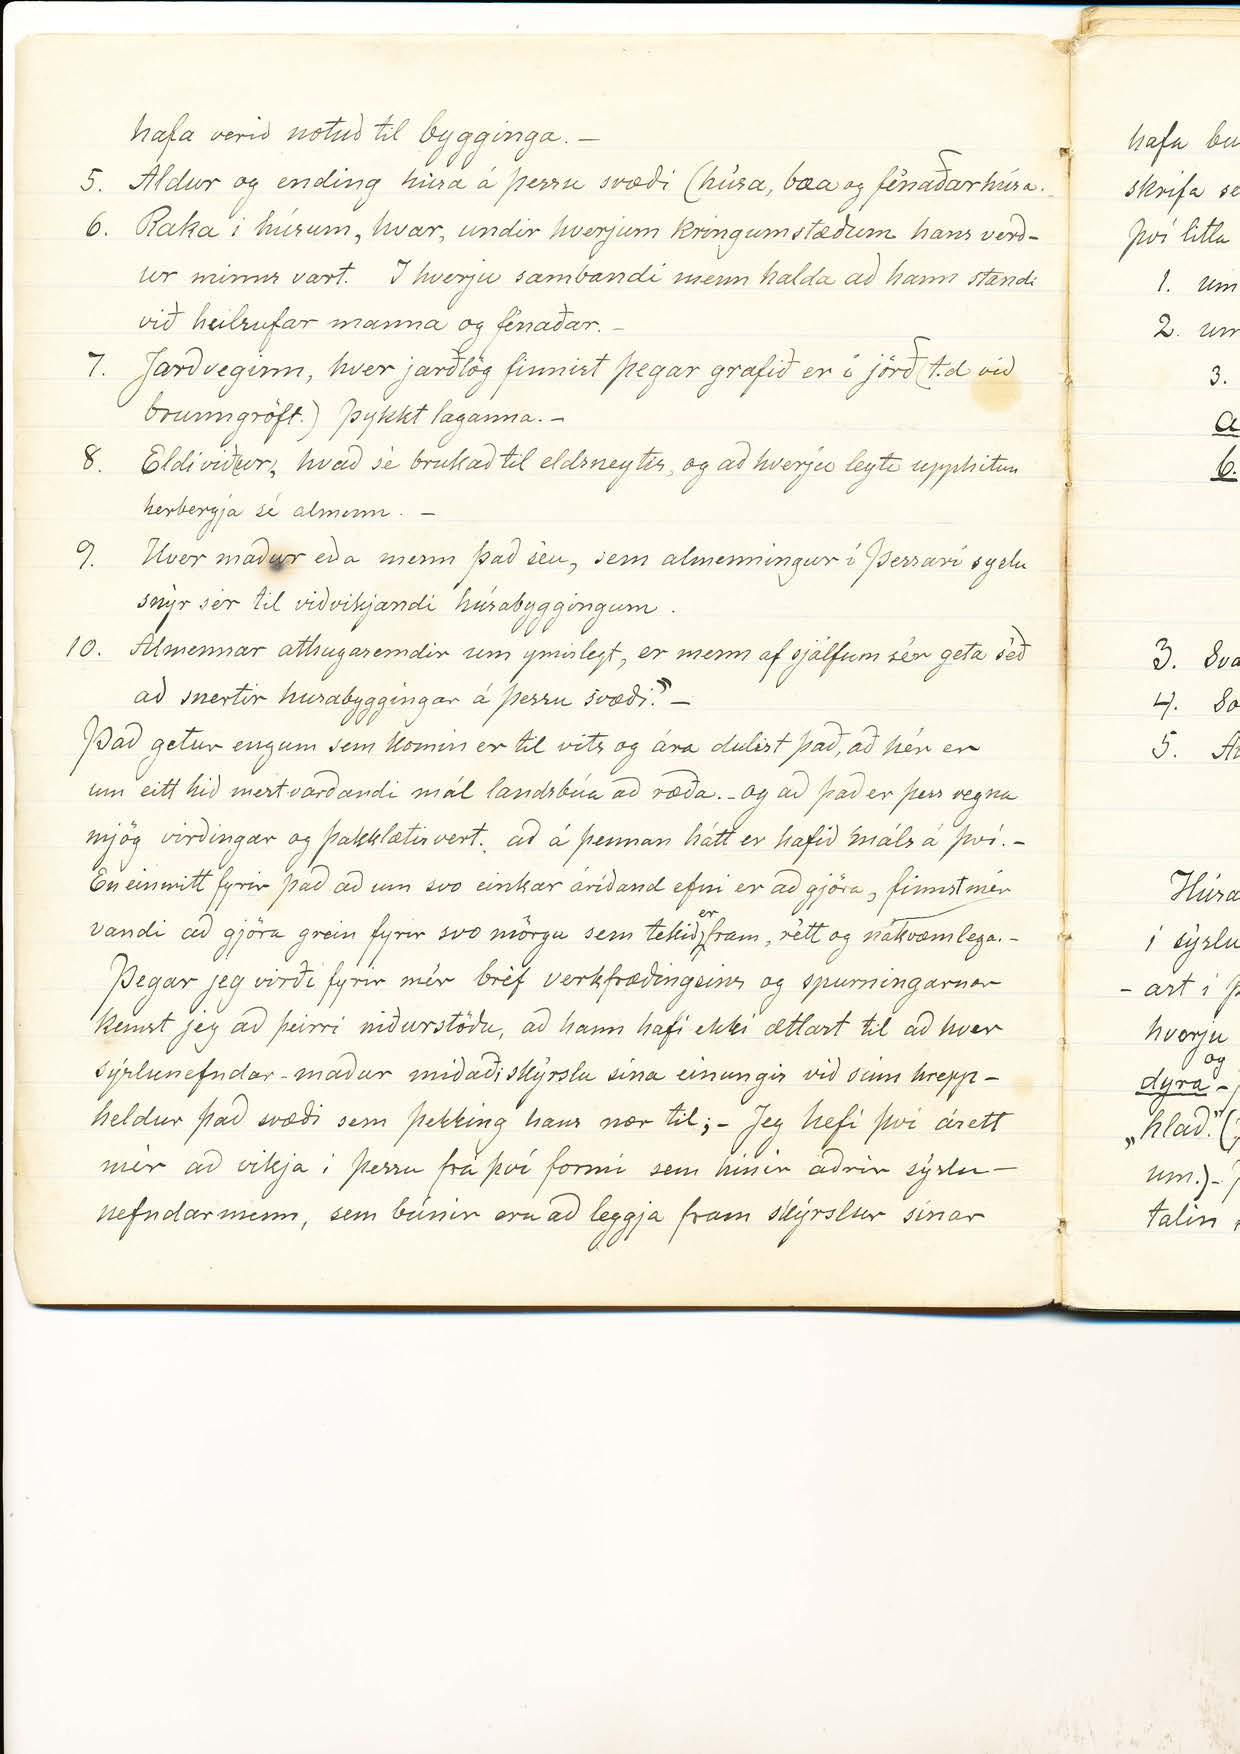 hafa verið notuð til bygginga. –
5. Aldur og ending húsa á þessu svæði (húsa, bæa og fénaðarhúsa.
6. Raka i húsum, hvar, undir hverjum kringumstæðum hans verð-
ur minns vart. I hverju sambandi menn halda að hann standi
við heilsufar manna og fénaðar. –
7. Jarðveginn, hver jarðlög finnist þegar grafið er í jörð (t.d við
brunngröft.) Þykkt laganna. –
8. Eldiviður, hvað sé brukað til eldsneytis, og að hverju leyti upphitun
herbergja sé almenn. –
9. Hver maður eða menn það séu, sem almenningur í þessari syslu
snýr sér til viðvikjandi húsabyggingum.
10. Almennar athugasemdir um ymislegt, er menn af sjálfum sér geta séð
að snertir husabyggingar á þessu svæði." –
Það getur engum sem kominn er til vits og ára dulist það, að hér er
um eitt hið mestvarðandi mál landsbúa að ræða. – og að það er þess vegna
mjög virðingar og þakklætisvert, að á þennan hátt er hafið máls á því. –
En einmitt fyrir það að um svo einkar áríðand efni er að gjöra, finnst mér
vandi að gjöra grein fyrir svo mörgu sem tekið er fram, rétt og nákvæmlega. –
Þegar jeg virði fyrir mér bréf verkfræðingsins og spurningarnar
kemst jeg að þeirri niðurstöðu, að hann hafi ekki ætlast til að hver
sýslunefndar-maður miðaði skýrslu sína einungis við sinn hrepp –
heldur það svæði sem þekking hans nær til; – Jeg hefi því ásett
mér að vikja i þessu frá því formi sem hinir aðrir sýslu –
nefndarmenn, sem búnir eru að leggja fram skýrslur sínar
hafa
skrifa
því litla
1. um
2. um
3.
a
b.
3.
4.
5.
Húsa
í sýslu
- ast i
hverju
og
dyra –
„hlað." (
um.) –
talin